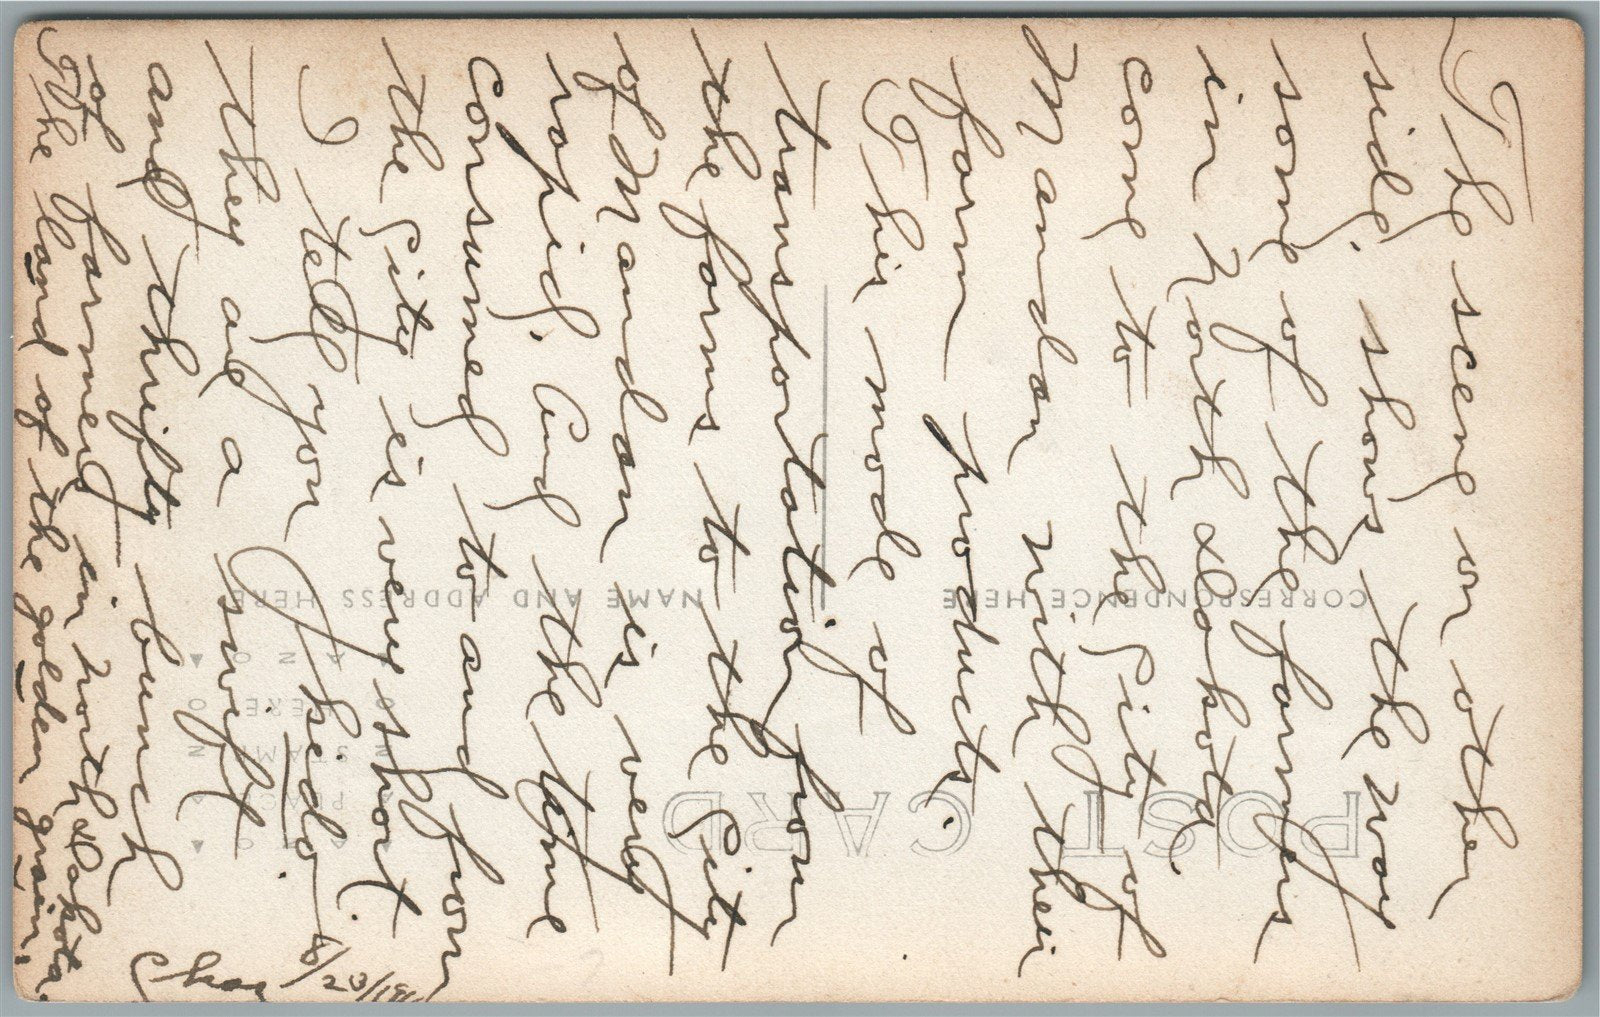 The scene on other
side, shows the way
some of the farmers
in North Dakota.
come to the City of
Mandan with their
farm products.
This mode of
transportation from
the farms to the City
of Mandan is very
rapid, and the time
consumed to and from
the City is very short.
I tell you Theido.
they are a swift
and thrifty bunch
of farmers in North Dakota.
The land of the golden grain.
Chas
8/23/191
POST CARD
CORRESPONDENCE HERE
NAME AND ADDRESS HERE
PLACE
STAMP
HERE